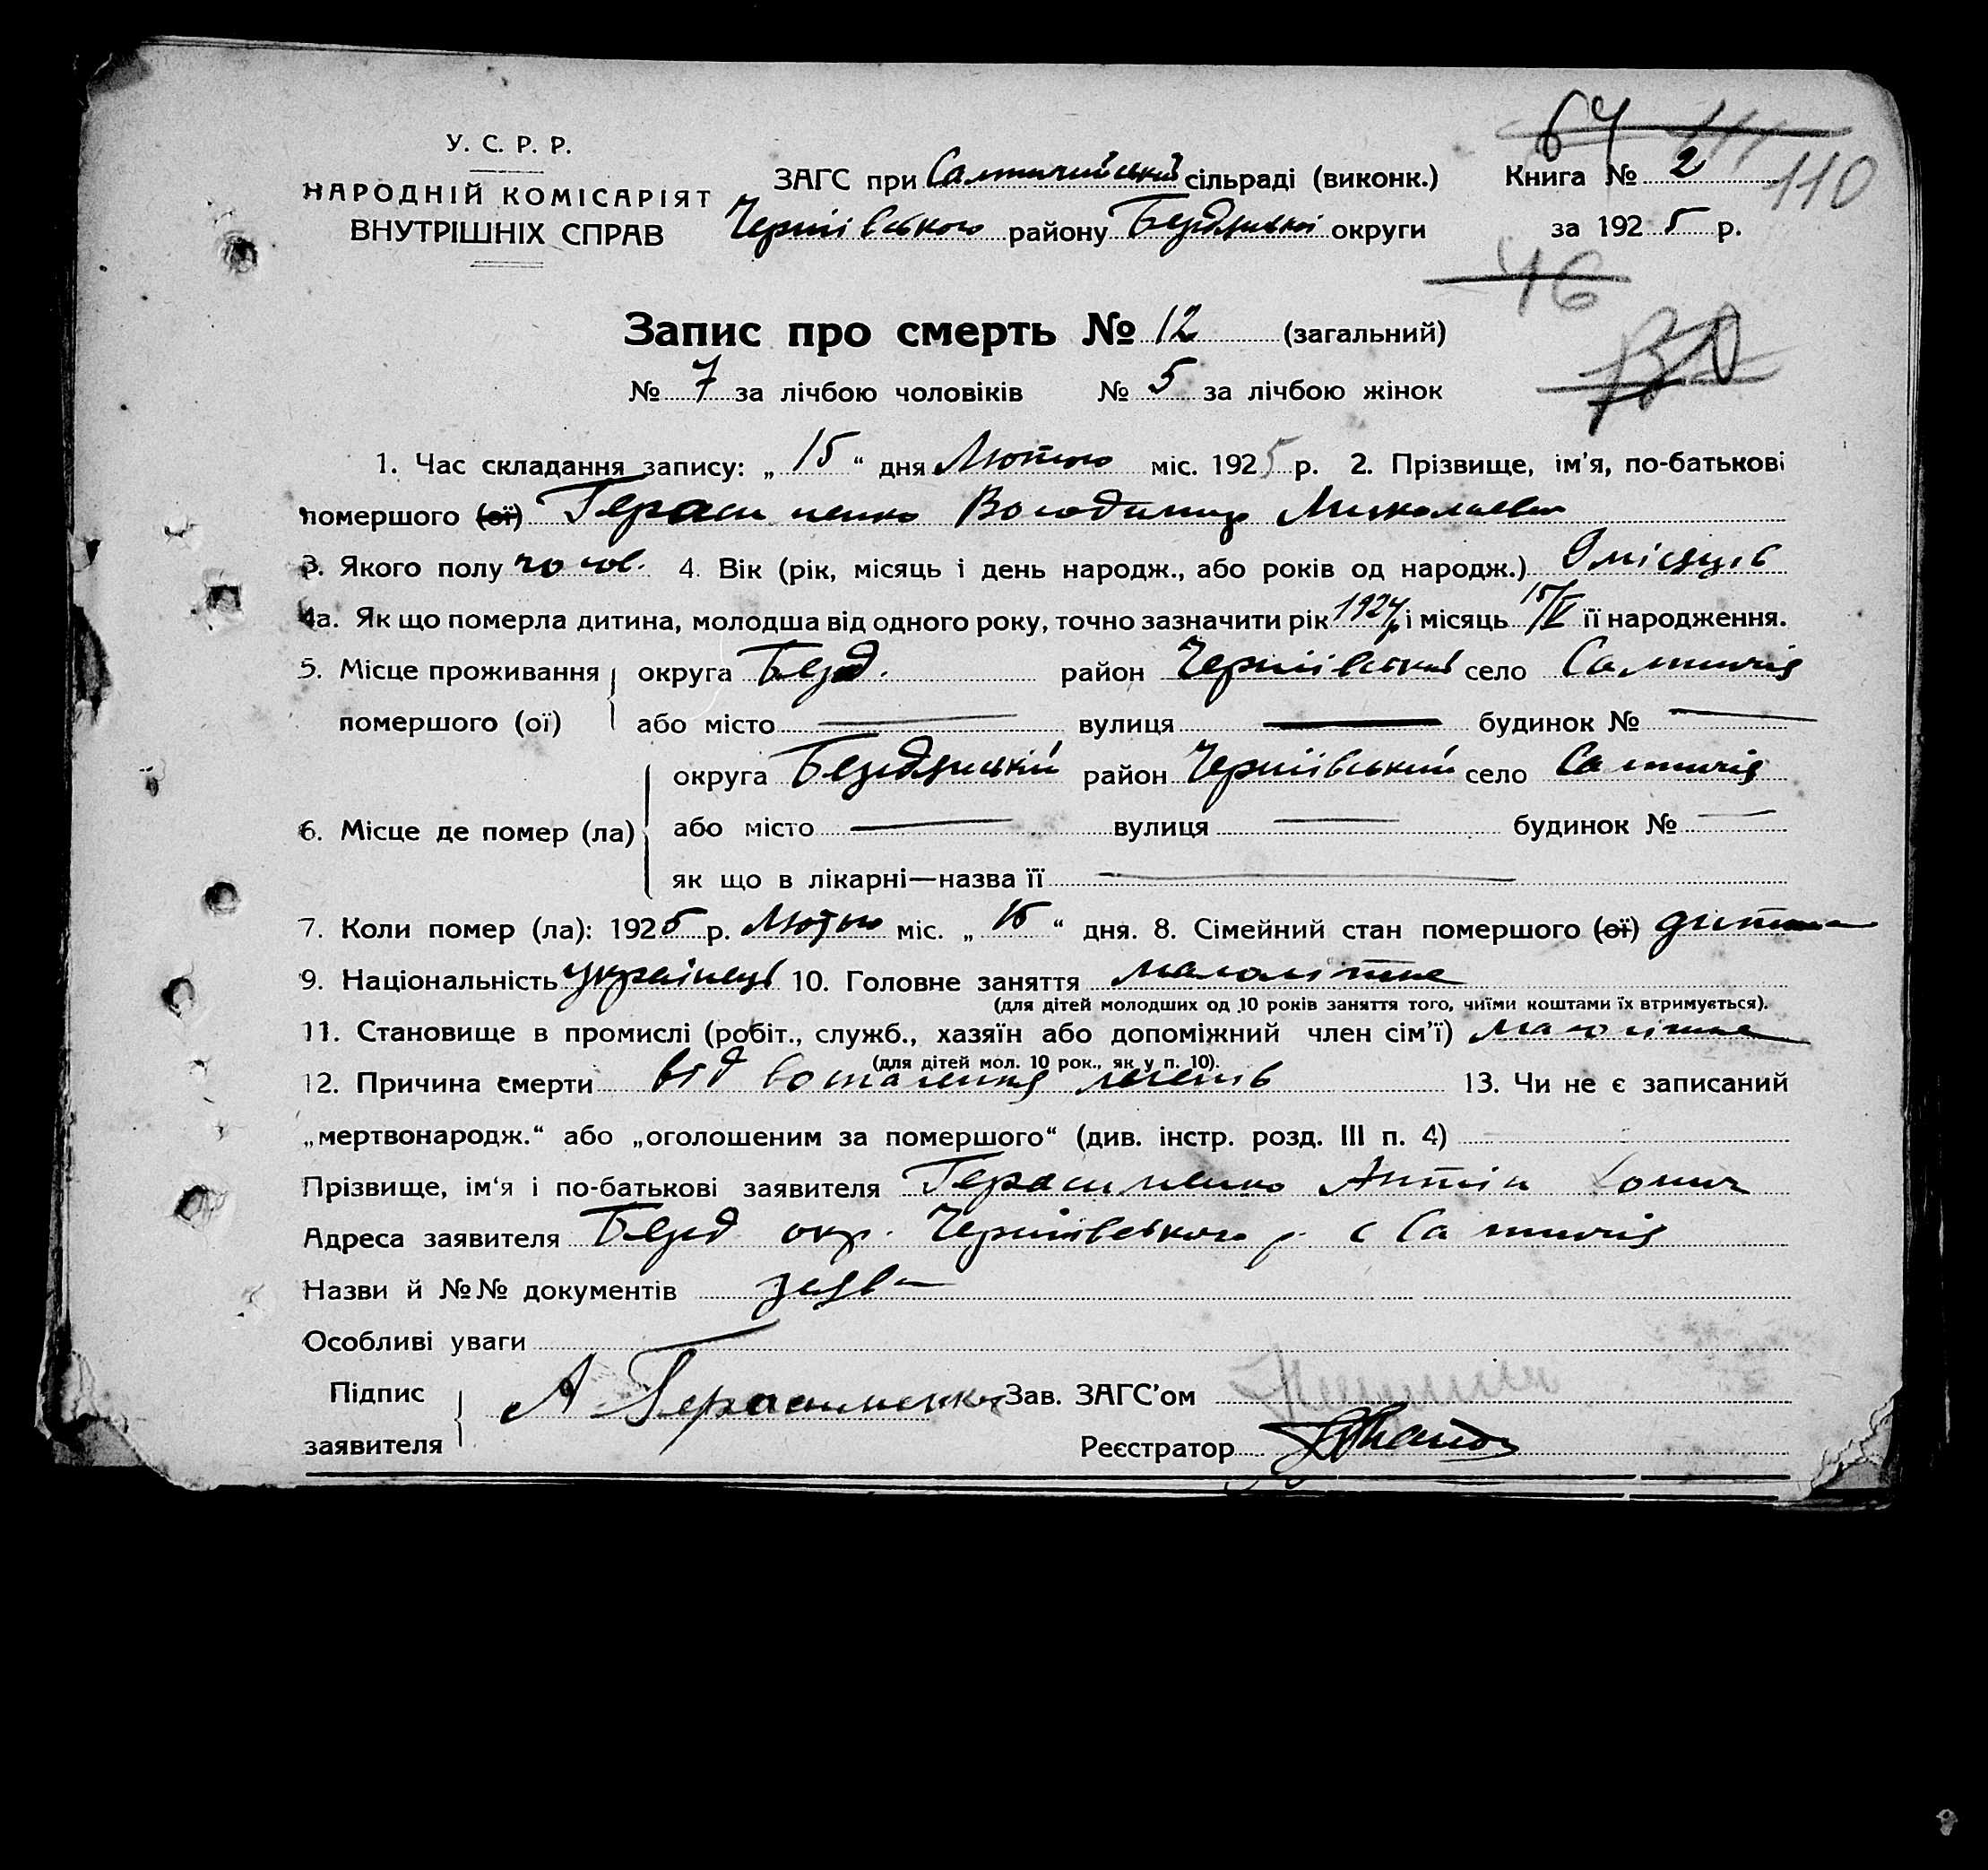 У. С. Р. Р.
НАРОДНІЙ КОМІСАРІЯТ
ВНУТРІШНІХ СПРАВ
ЗАГС при Салтичийській сільраді (виконк.)
Чернігівського району Бердянської округи
Книга № 2
за 1925 р.
64 111
110
46
Запис про смерть № 12 (загальний)
№ 7 за лічбою чоловіків № 5 за лічбою жінок
1. Час складання запису: „ 15 “ дня Лютого міс. 1925 р. 2. Прізвище, ім'я, по-батькові
помершого (ої) Герасименко Володимир Миколаевич
3. Якого полу чолов. 4. Вік (рік, місяць і день народж., або років од народж.) 9 місяців
4а. Як що померла дитина, молодша від одного року, точно зазначити рік 1924 р і місяць 15/V її народження.
5. Місце проживання помершого (ої) округа Берд. район Чернігівський село Салтичія
або місто — вулиця — будинок № —
6. Місце де помер (ла) округа Бердянській район Чернігівський село Салтичія
або місто — вулиця — будинок № —
як що в лікарні—назва її —
7. Коли помер (ла): 1925 р. Лютого міс. „ 15 “ дня. 8. Сімейний стан помершого (ої) дитина
9. Національність українець 10. Головне заняття малолітне
(для дітей молодших од 10 років заняття того, чиїми коштами їх втримується).
11. Становище в промислі (робіт., служб., хазяїн або допоміжний член сім'ї) малолітне
(для дітей мол. 10 рок., як у п. 10).
12. Причина смерти від воспаления легенів 13. Чи не є записаний
„мертвонародж.“ або „оголошеним за помершого“ (див. інстр. розд. III п. 4)
Прізвище, ім'я і по-батькові заявителя Герасименко Антін
Адреса заявителя Берд окр. Чернігівського р. с Салтичія
Назви й №№ документів заява
Особливі уваги
Підпис заявителя А Герасименко
Зав. ЗАГС'ом
Реєстратор